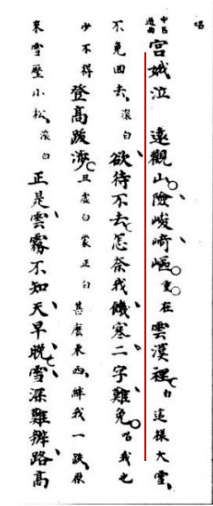 唱
中呂過曲 宮娥泣 遠觀山險峻崎嶇重在雲漠裡白這樣大雪
不免回去滾白欲待不去怎奈我饑寒二字難免唱我也
少不得登高跋涉丑虛白蒙正白甚麼東西絆我一跌原
來雪壓小松滾白正是雲霧不知天早晚雪深難辨路高